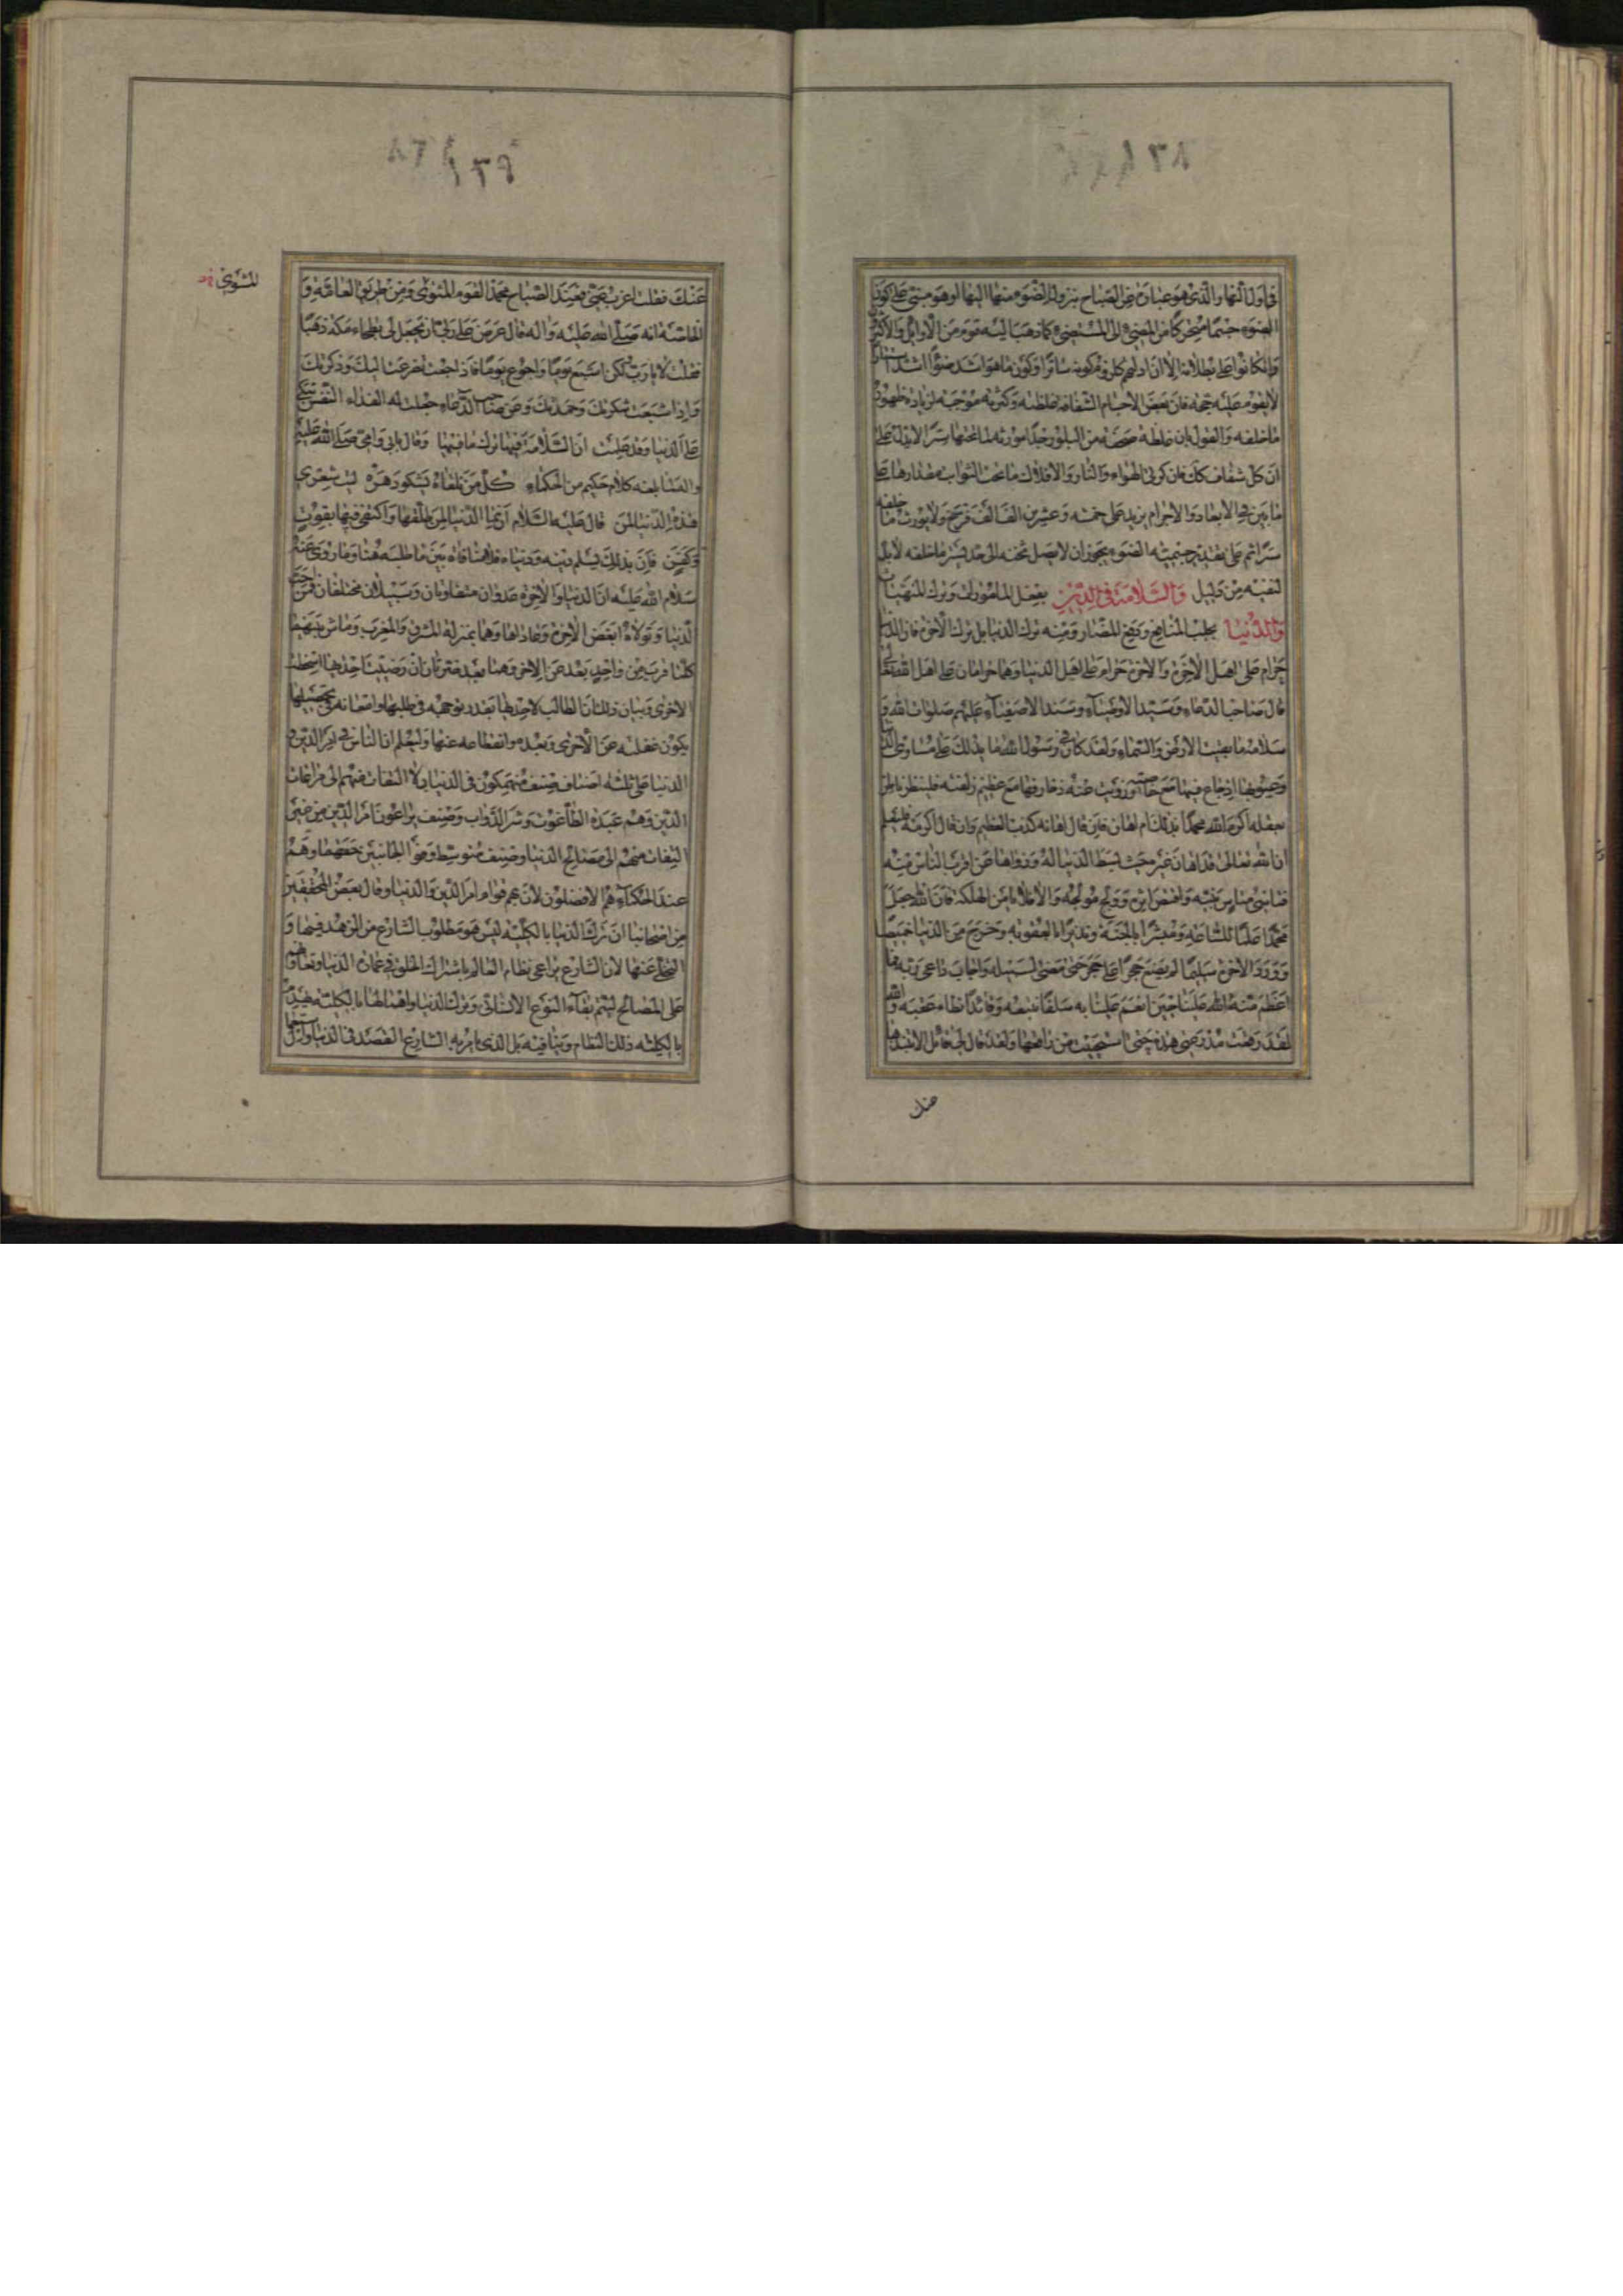 ١٣٨
في اول النهار والذي هو عبارة عن الصباح بنزول الضوء منها اليها او هو مبني على كون
الضوء جسما متحركا من المضيء الى المستضيء كما ذهب اليه قوم من الاوائل والاكثرون
وان كانوا على بطلانه الا ان ادلتهم كلزوم كونه ساترا وكون ما هو اشد ضوءا اشد سترا
لا يقوم عليه حجة فان بعض الاجسام الشفافة غلظته وكثرته موجبة لزيادة ظهور
ما خلفه والقول بان غلظة صفحة من البلور جدا مورثة لما تحتها سترا لا يدل على
ان كل شفاف كك فان كرتي الهواء والنار والافلاك ما تحت الثوابت مقدارها على
ما بين في الابعاد والاجرام يزيد على خمسة وعشرين الف الف فرسخ ولا يورث ما خلفه
سترا ثم على تقدير جسمية الضوء يجوز ان لا يصل ثخنه الى حد يستر ما خلفه لا بل
لنفيه من دليل والسلامة في الدين بفعل المامورات وترك المنهيات
والدنيا بجلب المنافع ودفع المضار ومنه ترك الدنيا بل ترك الاخرة فان الدنيا
حرام على اهل الاخرة والاخرة حرام على اهل الدنيا وهما حرامان على اهل الله تعالى
قال صاحب الدعاء وسيد الاوصياء وسند الاصفياء عليهم صلوات الله و
سلامه ما بقيت الارض والسماء ولقد كان في رسول الله ما يدلك على مساوي الدنيا
وعيوبها اذ جاع فيها مع خاصته وزويت عنه زخارفها مع عظيم زلفته فلينظر ناظر
بعقله اكرم الله محمدا بذلك ام اهانه فان قال اهانه كذب العظيم وان قال اكرمه فليعلم
ان الله تعالى قد اهان غيره حيث بسط الدنيا له وزواها عن اقرب الناس منه
فتاسى متاس بنبيه واقتص اثره وولج مولجه والا فلا يامن الهلكة فان الله جعل
محمدا علما للساعة ومبشرا بالجنة ونذيرا بالعقوبة وخرج من الدنيا خميصا
وورد الاخرة سليما لم يضع حجرا على حجر حتى مضى لسبيله واجاب داعي ربه فما
اعظم منة الله علينا حين انعم علينا به سلفا نتبعه وقائدا نطاء عقبه والله
لقد رقعت مدرعتي هذه حتى استحييت من راقعها ولقد قال لي قائل الا تنبذها
عنك
١٣٩
عنك فقلت اعزب عني فعند الصباح محمد القوم المثنوي ومن طريق العامة و
الخاصة انه صلى الله عليه واله قال عرض علي ربي ان يجعل لي بطحاء مكة ذهبا
فقلت لا يا رب لكن اشبع يوما واجوع يوما فاذا جعت تضرعت اليك وذكرتك
واذا شبعت شكرتك وحمدتك وعن صاحب الدعاء جعلت له الفداء النفس تبكي
على الدنيا وقد علمت ان السلامة فيها ترك ما فيها وقال بابي وامي صلى الله عليه
واله لما بلغه كلام حكيم من الحكماء كل من تلقاه يشكو دهره ليت شعري
هذه الدنيا لمن قال عليه السلام انما الدنيا لمن طلقها واكتفى فيها بقوت
وكفن فان بذلك يسلم دينه ودنياه فلا منافاة بين ما طلبه هنا وما روي عنه
سلام الله عليه ان الدنيا والاخرة عدوان متفاوتان وسبيلان مختلفان فمن احب
الدنيا وتولاها ابغض الاخرة وعاداها وهما بمنزلة المشرق والمغرب وماش بينهما
كلما قرب من واحد بعد عن الاخر وهما بعد ضرتان ان رضيت احدها اسخطت
الاخرى وبيان ذلك ان الطالب لاحدهما بقدر توجهه في طلبها وامعانه في تحصيلها
يكون غفلته عن الاخرى وبعده وانقطاعه عنها وليعلم ان الناس في امر الدين و
الدنيا على ثلثة اصناف صنف منهمكون في الدنيا بلا التفات منهم الى مراعات
الدين وهم عبدة الطاغوت وشر الدواب وصنف يراعون امر الدين من غير
التفات منهم الى مصالح الدنيا وصنف متوسط وفوا الجانبين حقهما وهم
عند الحكماء هم الافضلون لان بهم قوام امر الدين والدنيا وقال بعض المحققين
من اصحابنا ان ترك الدنيا بالكلية ليس هو مطلوب الشارع من الزهد فيها و
التخلي عنها لان الشارع يراعي نظام العالم باشتراك الخلق في عمارة الدنيا وتعاونهم
على المصالح ليتم بقاء النوع الانساني وترك الدنيا واهمالها بالكلية يهدم
بالكلية ذلك النظام وينافيه بل الذي يامر به الشارع القصد في الدنيا واستعمال